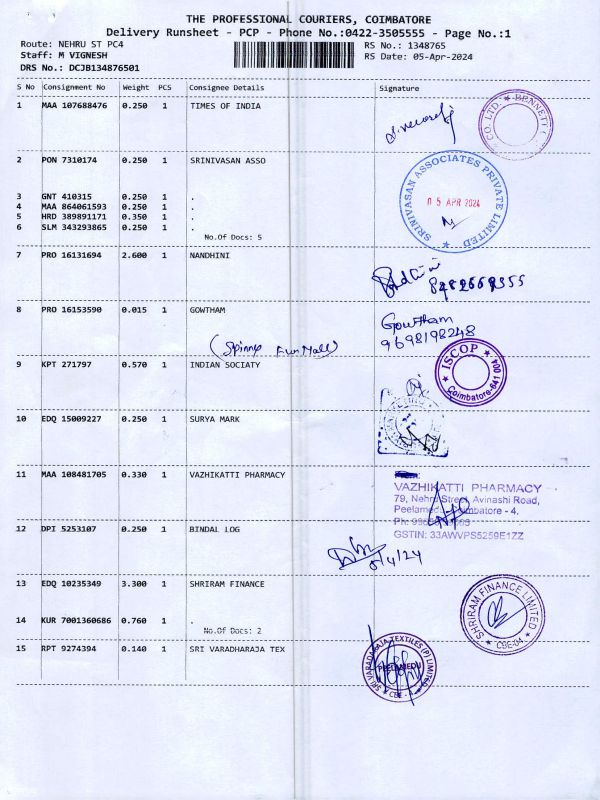 THE PROFESSIONAL COURIERS, COIMBATORE
Delivery Runsheet - PCP - Phone No.:0422-3505555 - Page No.:1
Route: NEHRU ST PC4 RS No.: 1348765
Staff: M VIGNESH RS Date: 05-Apr-2024
DRS No.: DCJB134876501
S No Consignment No Weight PCS Consignee Details Signature
1 MAA 107688476 0.250 1 TIMES OF INDIA
CO. LTD. ★ BENNETT
2 PON 7310174 0.250 1 SRINIVASAN ASSO
SRINIVASAN ASSOCIATES PRIVATE LIMITED ★
05 APR 2024
3 GNT 410315 0.250 1 .
4 MAA 864061593 0.250 1 .
5 HRD 389891171 0.350 1 .
6 SLM 343293865 0.250 1 .
No.Of Docs: 5
7 PRO 16131694 2.600 1 NANDHINI
8 PRO 16153590 0.015 1 GOWTHAM
Gowtham
9698198248
(Spinny Fun Mall)
9 KPT 271797 0.570 1 INDIAN SOCIATY
★ ISCOP ★ Coimbatore-641 004
10 EDQ 15009227 0.250 1 SURYA MARK
11 MAA 108481705 0.330 1 VAZHIKATTI PHARMACY
VAZHIKATTI PHARMACY
79, Nehru Street, Avinashi Road,
Peelamedu, Coimbatore - 4.
Ph:
GSTIN: 33AWVPS5259E1ZZ
12 DPI 5253107 0.250 1 BINDAL LOG
5/4/24
13 EDQ 10235349 3.300 1 SHRIRAM FINANCE
SHRIRAM FINANCE LIMITED ★ CBE-04 ★
14 KUR 7001360686 0.760 1 .
No.Of Docs: 2
15 RPT 9274394 0.140 1 SRI VARADHARAJA TEX
SRI VARADARAJA TEXTILES (P) LIMITED
PEELAMEDU